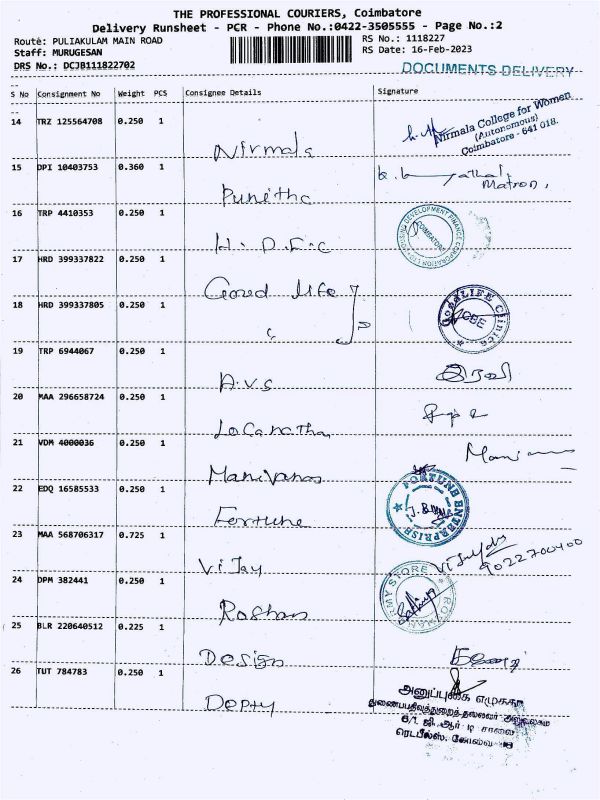 THE PROFESSIONAL COURIERS, Coimbatore
Delivery Runsheet - PCR - Phone No.:0422-3505555 - Page No.:2
Route: PULIAKULAM MAIN ROAD
RS No.: 1118227
Staff: MURUGESAN
RS Date: 16-Feb-2023
DRS No.: DCJB111822702
DOCUMENTS DELIVERY
S No Consignment No Weight PCS Consignee Details Signature
14 TRZ 125564708 0.250 1
Nirmala
Nirmala College for Women
(Autonomous)
Coimbatore - 641 018.
15 DPI 10403753 0.360 1
Punitha
Matron,
16 TRP 4410353 0.250 1
H.D.F.C
HOUSING DEVELOPMENT FINANCE CORPORATION LTD
COIMBATORE
17 HRD 399337822 0.250 1
Good life
18 HRD 399337805 0.250 1
GoodLIFE Clinics
CBE
19 TRP 6944067 0.250 1
A.V.S
20 MAA 296658724 0.250 1
Loganathan
21 VDM 4000036 0.250 1
Manivanan
22 EDQ 16585533 0.250 1
Fortune
FORTUNE ENTERPRISE
23 MAA 568706317 0.725 1
Vijay
9022700400
24 DPM 382441 0.250 1
Roshan
STORE
25 BLR 220640512 0.225 1
Design
26 TUT 784783 0.250 1
Depty
அனுப்புகை எழுத்தர்
துணைப்பதிவுத்துறைத் தலைவர் அலுவலகம்
ஜி. ஆர் டி சாலை
ரெட்பீல்ஸ், கோவை